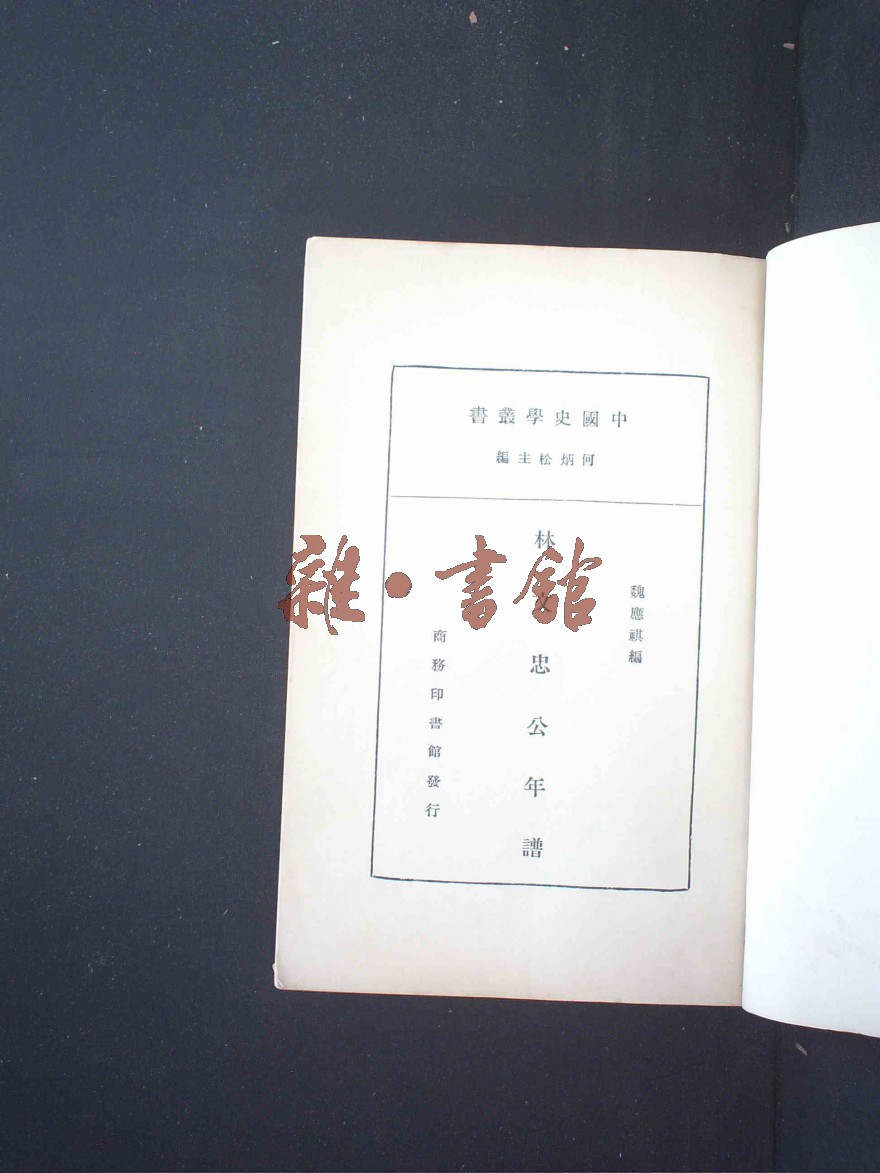 中國史學叢書
何炳松主編
魏應祺編
林文忠公年譜
商務印書館發行
雜·書館